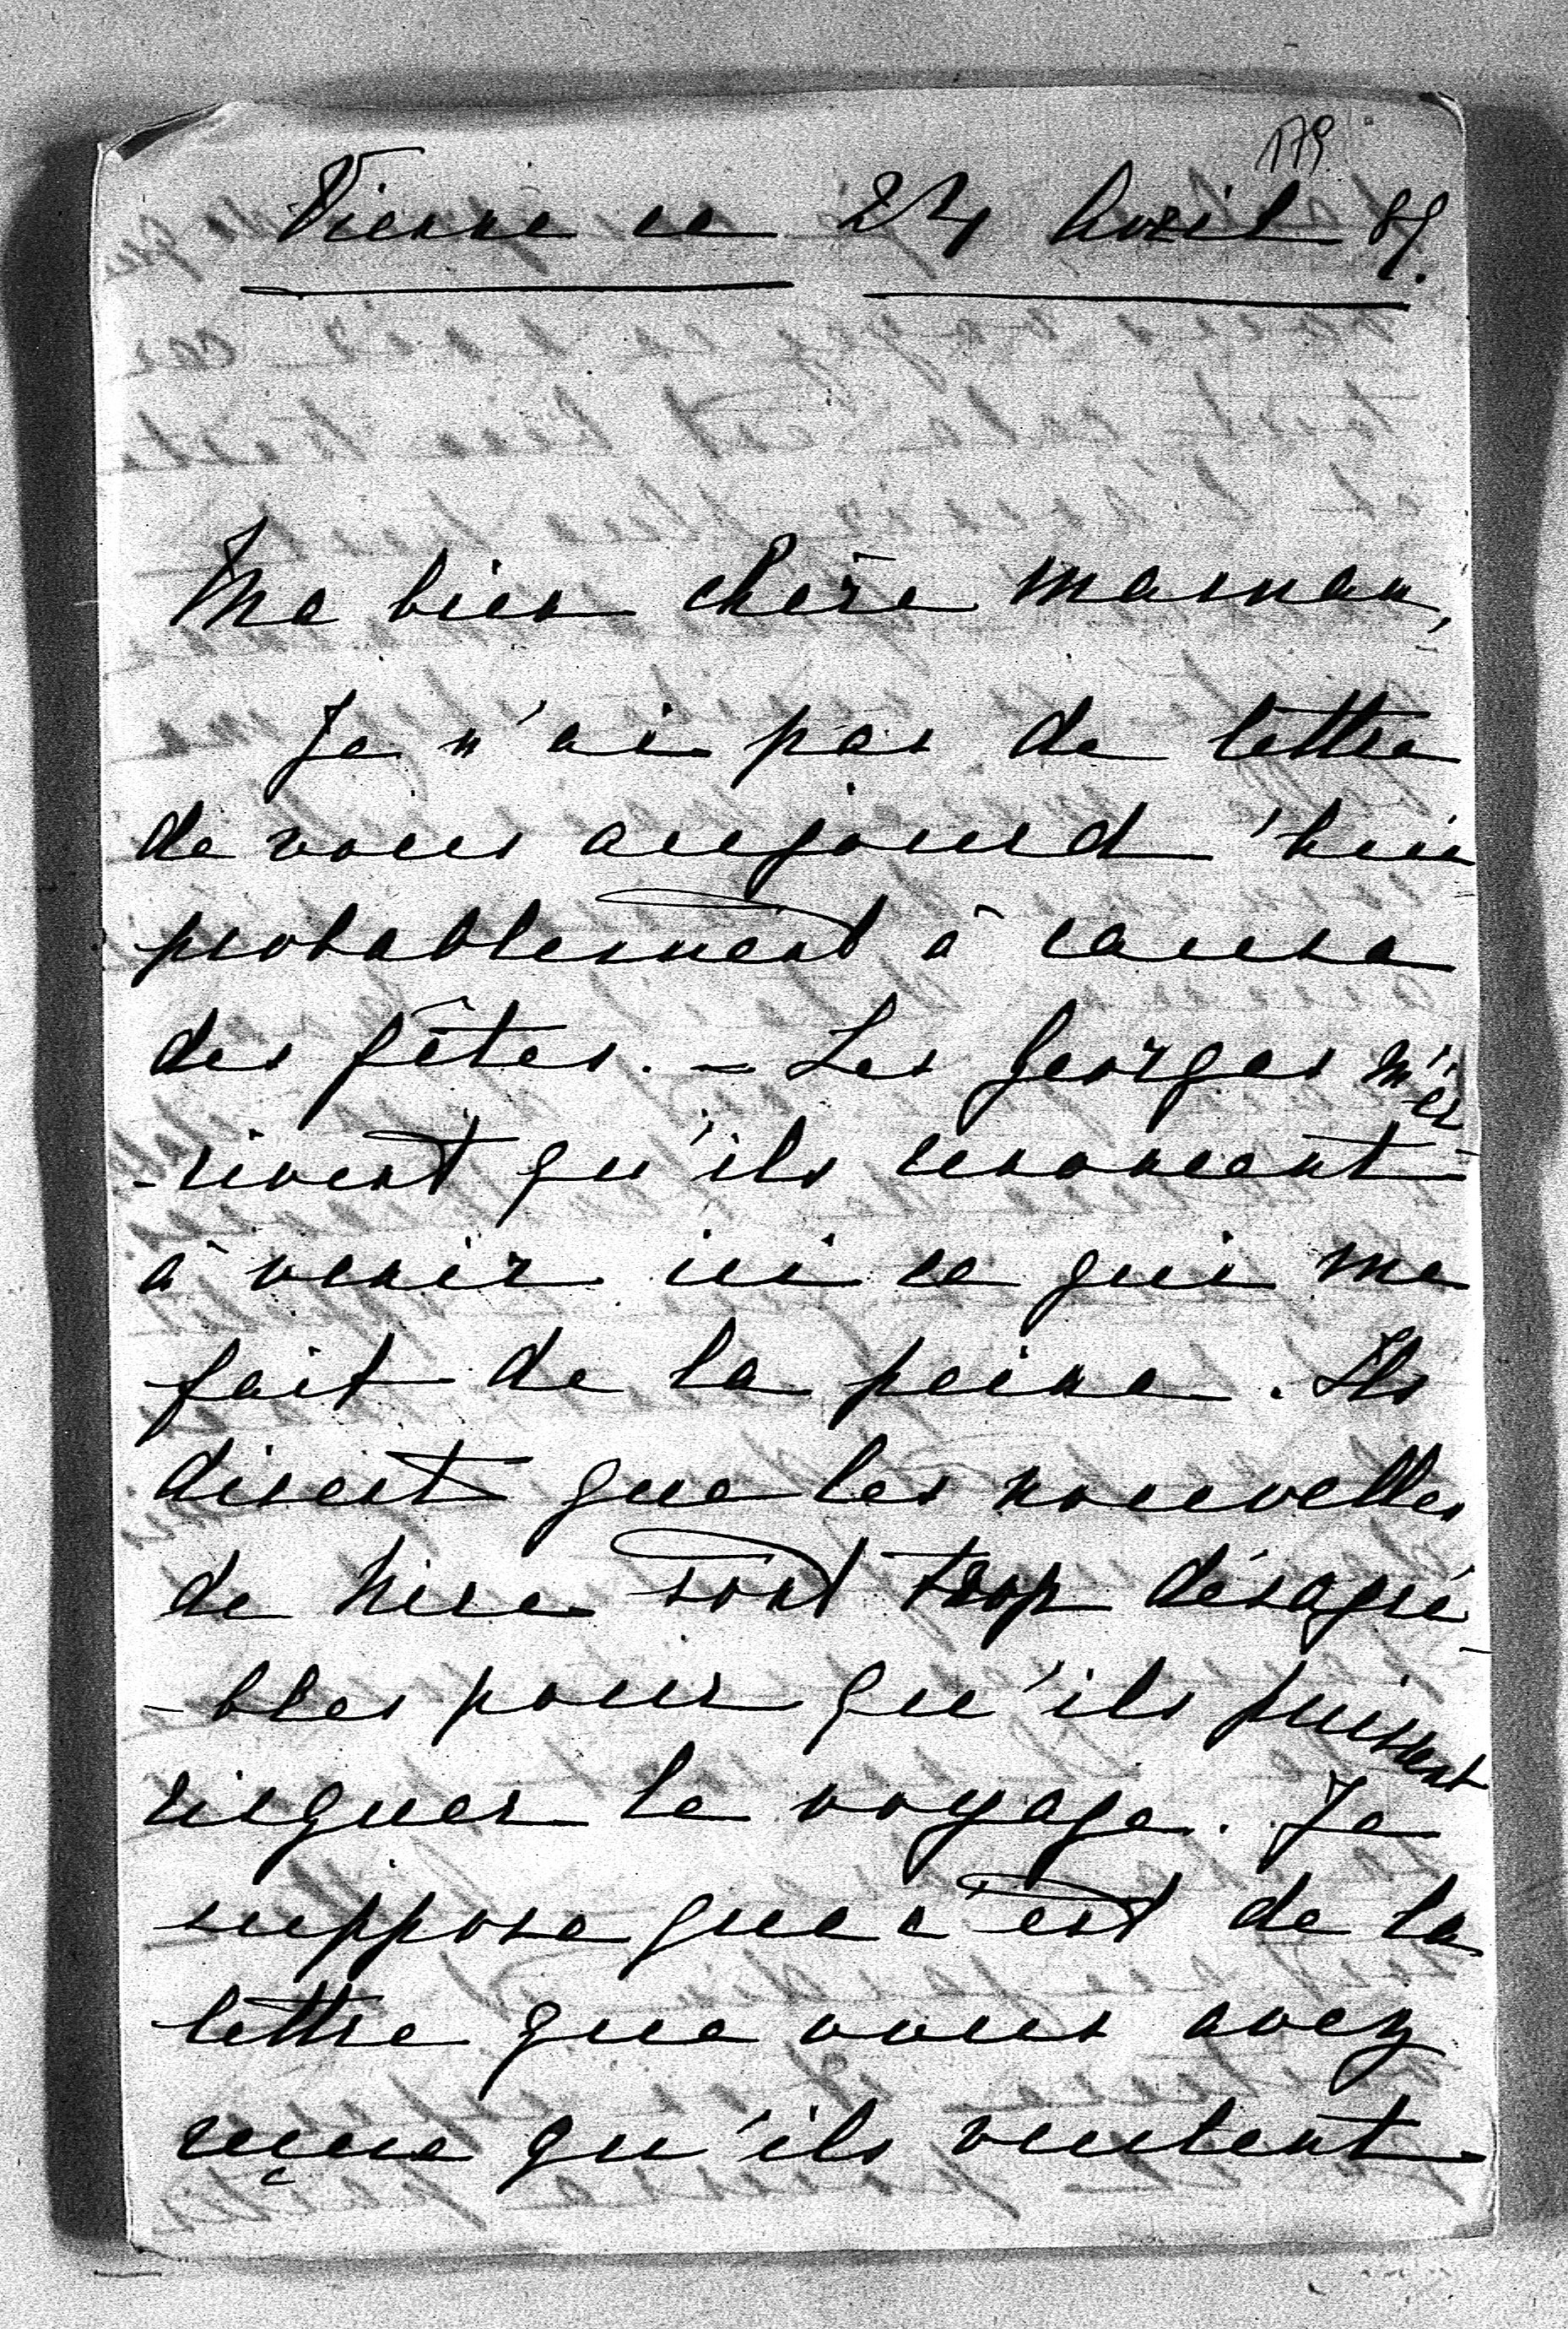 179
Vienne ce 24 Avril 89.
Ma bien chère maman,
Je n'ai pas de lettre
de vous aujourd'hui
probablement à cause
des fêtes. - Les Georges m'éc
-rivent qu'ils renoncent
à venir ici ce qui me
fait de la peine. Ils
disent que les nouvelles
de Nice sont trop désagré
-bles pour qu'ils puissent
risquer le voyage. Je
suppose que c'est de la
lettre que vous avez
reçue qu'ils veulent